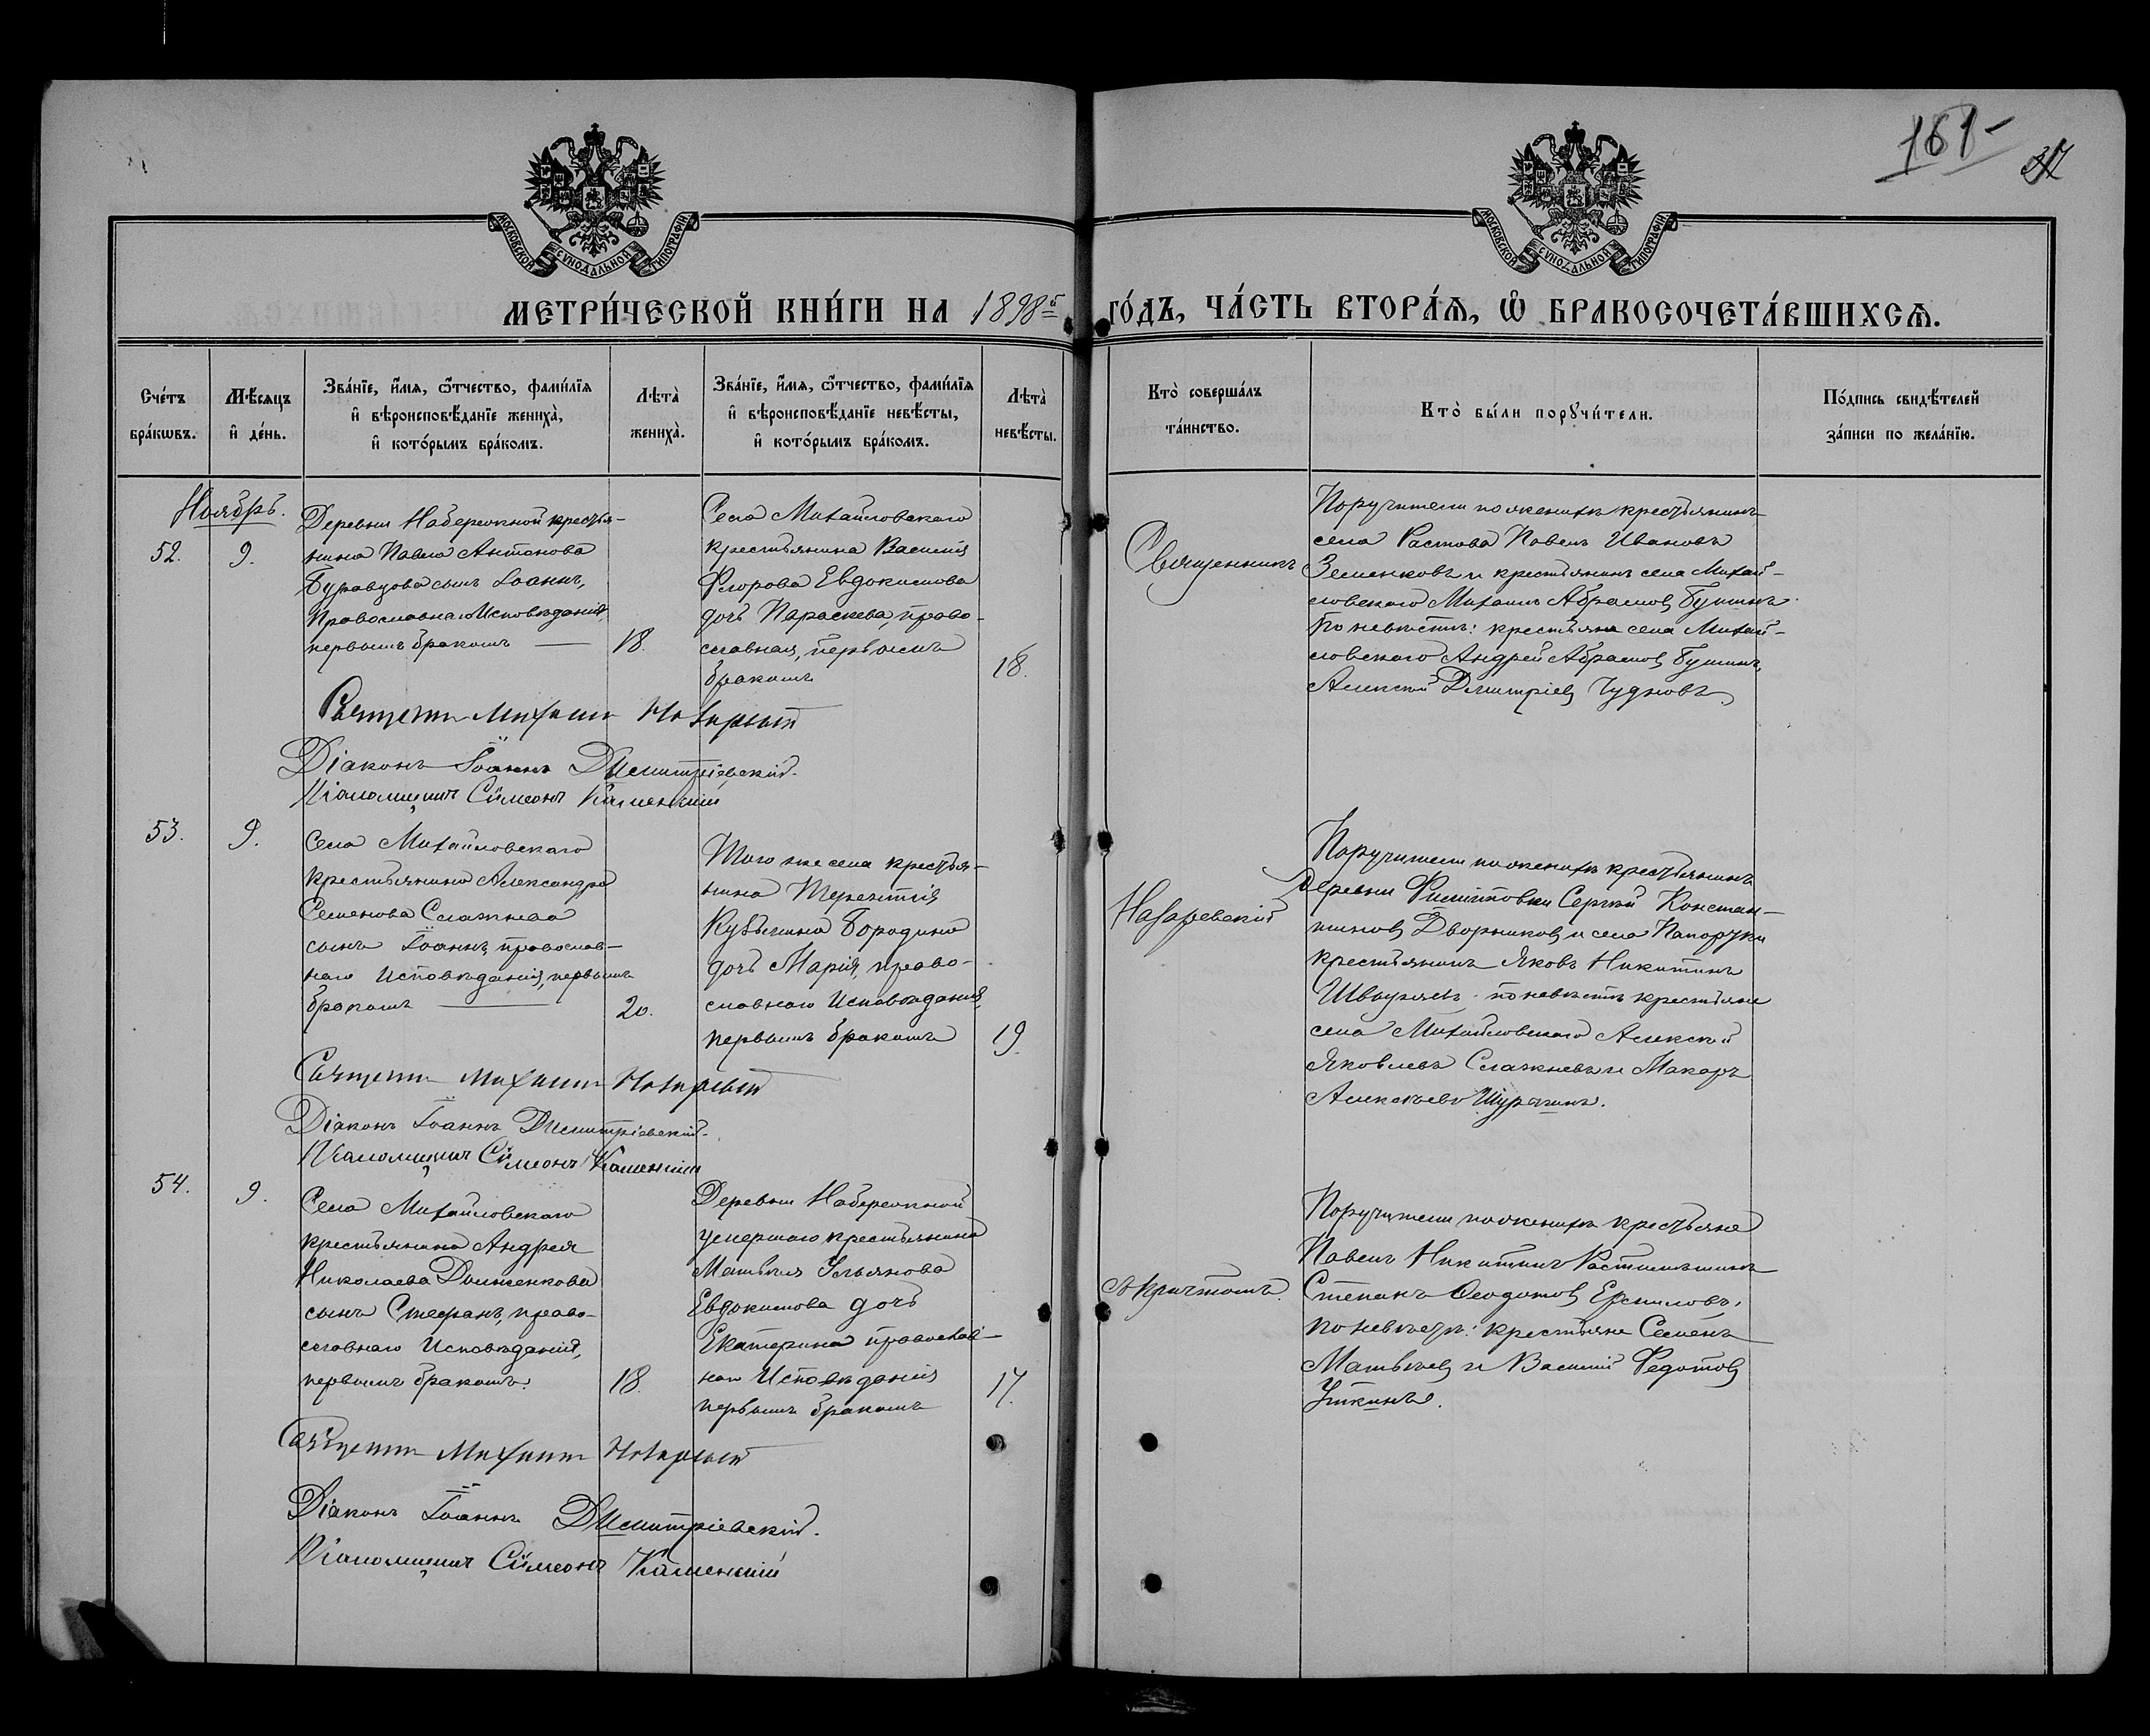 161-
МОСКОВСКОЙ СѴНОДАЛЬНОЙ ТИПОГРАФІИ
МОСКОВСКОЙ СѴНОДАЛЬНОЙ ТИПОГРАФІИ
МЕТРИ́ЧЕСКОЙ КНИ́ГИ НА 1898й ГО́ДЪ, ЧА́СТЬ ВТОРА́Ѧ, Ѽ БРАКОСОЧЕТА́ВШИХСѦ.
Сче́тъ
бра́кѡвъ.
Мѣ́сѧцъ
и҆ де́нь.
Зва́нїе, и҆́мѧ, ѻ҆́тчество, фами́лїѧ
и҆ вѣроисповѣ́данїе жениха̀,
и҆ кото́рымъ бра́комъ.
Лѣта̀
жениха̀.
Зва́нїе, и҆́мѧ, ѻ҆́тчество, фами́лїѧ
и҆ вѣроисповѣ́данїе невѣ́сты,
и҆ кото́рымъ бра́комъ.
Лѣта̀
невѣ́сты.
Кто̀ соверша́лъ
та́инство.
Кто̀ бы́ли порꙋчи́тели.
По́дпись свидѣ́телей
за́писи по жела́нїю.
Ноябрь.
52.
9.
Деревни Набережной крестья-
нина Павла Антонова
Буравцова сынъ Іоаннъ,
Православнаго Исповѣданія,
первымъ бракомъ —
18.
Села Михайловскаго
крестьянина Василія
Флорова Евдокимова
дочь Параскева, право-
славная, первымъ
бракомъ
18.
Священникъ
Поручители по женихѣ крестьянинъ
села Растова Павелъ Ивановъ
Земенковъ и крестьянинъ села Михай-
ловскаго Михаилъ Абрамовъ Бушинъ.
По невѣстѣ: крестьяне села Михай-
ловскаго Андрей Абрамовъ Бушинъ,
Алексѣй Димитріевъ Чудновъ.
Священникъ Михаилъ Назаревскій
Діаконъ Іоаннъ Димитріевскій.
Псаломщикъ Сѵмеонъ Каменскій
53.
9.
Села Михайловскаго
крестьянина Александра
Семенова Слажнева
сынъ Іоаннъ, православ-
наго Исповѣданія, первымъ
бракомъ —
20.
Того же села крестья-
нина Терентія
Кузьмина Бородина
дочь Марія, право-
славнаго Исповѣданія,
первымъ бракомъ
19.
Назаревскій
Поручители по женихѣ крестьянинъ
деревни Филипповки Сергѣй Констан-
тиновъ Дворниковъ и села Папоротки
крестьянинъ Яковъ Никитинъ
по невѣстѣ крестьяне
села Михайловскаго Алексѣй
Яковлевъ Слажневъ и Макаръ
Алексѣевъ Шурыгинъ.
Священникъ Михаилъ Назаревскій
Діаконъ Іоаннъ Димитріевскій.
Псаломщикъ Сѵмеонъ Каменскій
54.
9.
Села Михайловскаго
крестьянина Андрея
Николаева Долженкова
сынъ Стефанъ, право-
славнаго Исповѣданія,
первымъ бракомъ.
18.
Деревни Набережной
умершаго крестьянина
Матвѣя Ульянова
Евдокимова дочь
Екатерина православ-
наго Исповѣданія
первымъ бракомъ
17.
съ причтомъ.
Поручители по женихѣ крестьяне
Павелъ Никитинъ
Степанъ Ѳеодотовъ Ермиловъ,
по невѣстѣ: крестьяне Семенъ
Матвѣевъ и Василій Федотовъ
Уткинъ.
Священникъ Михаилъ Назаревскій
Діаконъ Іоаннъ Димитріевскій.
Псаломщикъ Сѵмеонъ Каменскій